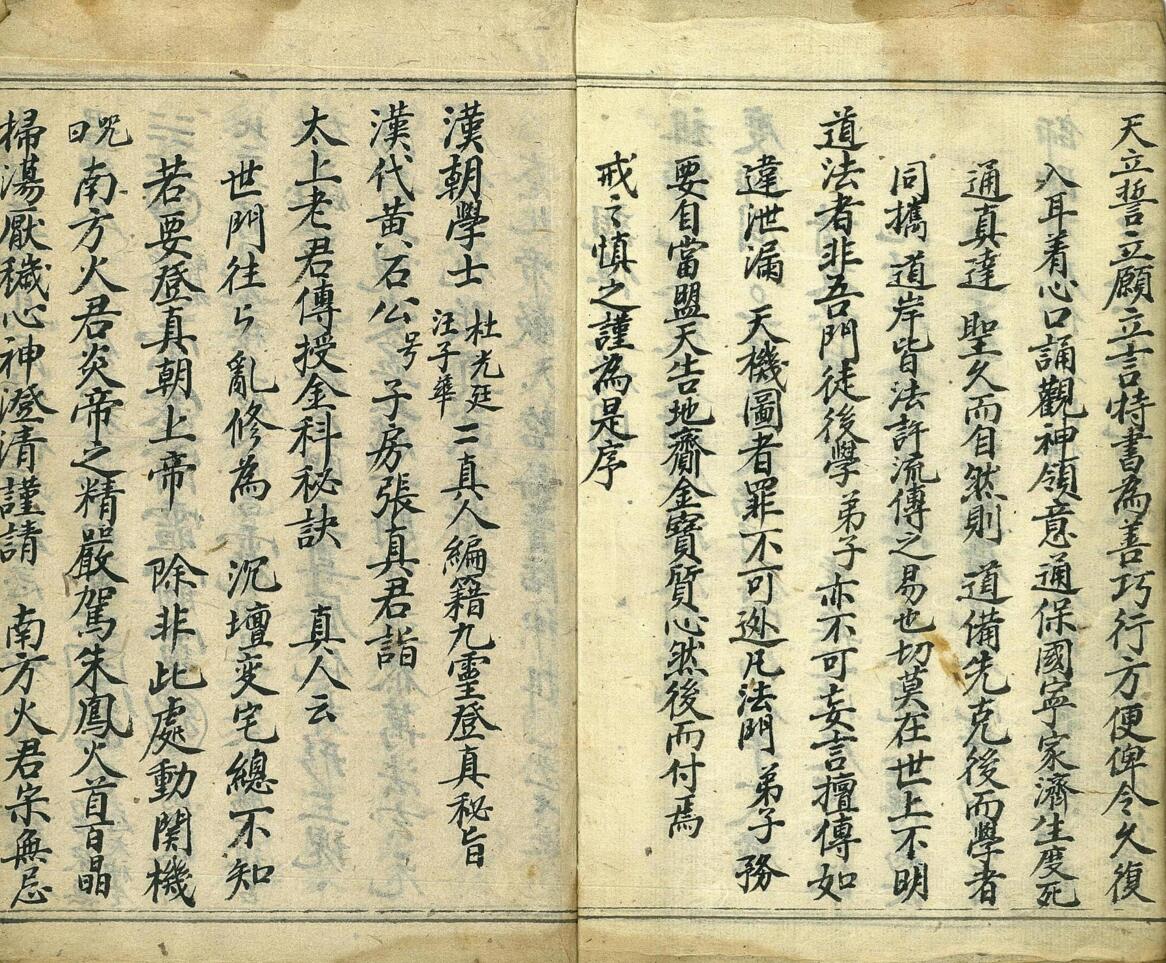 天立誓立願立言特書為善巧行方便俾令久復
入耳着心口誦觀神領意通保國寧家濟生度死
通真達 聖久而自然則 道備先克後而學者
同攜 道岸皆法許流傳之易也切莫在世上不明
道法者非吾門徒後學 弟子亦不可妄言擅傳如
違泄漏 天機圖者罪不可逃凡法門 弟子 務
要自當盟天告地齎金寶質心然後而付焉
戒〻慎之謹為是序
漢朝學士 杜光廷 汪子華 二真人編籍九靈登真秘旨
漢代黃石公号 子房張真君詣
太上老君傳授金科秘訣 真人云
世門往〻亂修為 沉壇变宅總不知
若要登真朝上帝 除非此處動関機
咒曰 南方火君炎帝之精嚴駕朱鳳火首百晶
掃湯厭穢心神澄清謹請 南方火君宋無忌